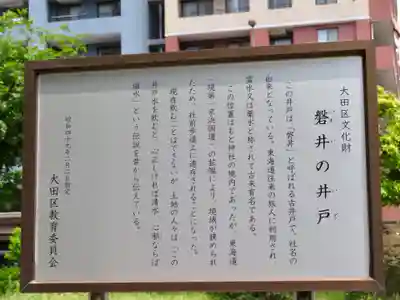 大田区文化財
磐井の井戸
この井戸は、「磐井」と呼ばれる古井戸で、社名の
由来となっている。東海道往来の旅人に利用され
霊水又は薬水と称されて古来有名である。
この位置はもと神社の境内であったが、東海道
(現第一京浜国道)の拡幅により、境域がせばめられ
たため、社前歩道上に遺存されることになった。
現在飲むことはできないが、土地の人々は、「この
井戸水を飲むと、心正しければ清水、心邪ならば
塩水」という伝説を昔から伝えている。
昭和四十九年二月二日指定
大田区教育委員会